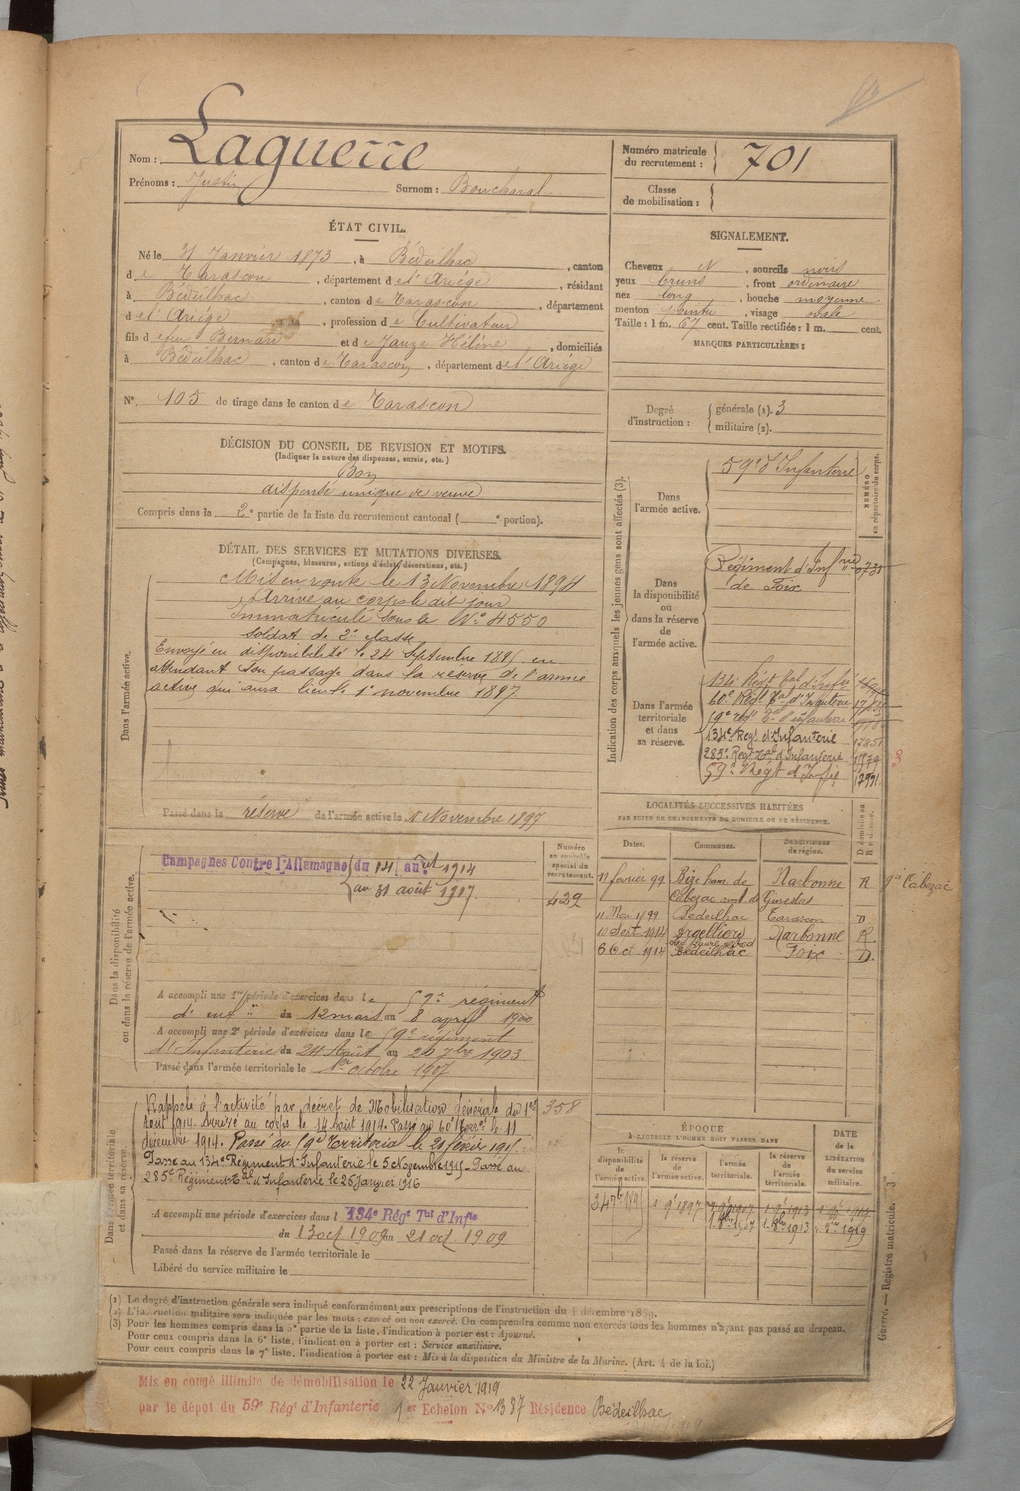 Nom : Laguerre
Prénoms : Justin Surnom : Boucharal
Numéro matricule du recrutement : 701
Classe de mobilisation :
ÉTAT CIVIL.
Né le 31 Janvier 1873, à Bédeilhac, canton
de Tarascon, département de l'Ariége, résidant
à Bédeilhac, canton de Tarascon, département
de l'Ariége, profession de Cultivateur
fils de feu Bernard et de Jauze Hélène, domiciliés
à Bédeilhac, canton de Tarascon, département de l'Ariége
N°. 105 de tirage dans le canton de Tarascon
SIGNALEMENT.
Cheveux N, sourcils noirs
yeux bruns, front ordinaire
nez long, bouche moyenne
menton pointu, visage ovale
Taille : 1 m. 67 cent. Taille rectifiée : 1 m. cent.
MARQUES PARTICULIÈRES :
Degré d'instruction : générale (1). 3
militaire (2).
DÉCISION DU CONSEIL DE REVISION ET MOTIFS.
(Indiquer la nature des dispenses, sursis, etc.)
Bon
dispensé unique de veuve
Compris dans la 2e partie de la liste du recrutement cantonal ( e portion).
DÉTAIL DES SERVICES ET MUTATIONS DIVERSES.
(Campagnes, blessures, actions d'éclat, décorations, etc.)
Dans l'armée active.
Mis en route le 13 Novembre 1894
Arrivé au corps le dit jour
Immatriculé sous le N° 4550
soldat de 2e classe
Envoyé en disponibilité le 24 Septembre 1895 en
attendant son passage dans la réserve de l'armée
active qui aura lieu le 1er novembre 1897
Passé dans la réserve de l'armée active le 1er Novembre 1897
Indication des corps auxquels les jeunes gens sont affectés (3).
NUMÉRO au répertoire du corps.
Dans l'armée active.
59e d'Infanterie
Dans la disponibilité ou dans la réserve de l'armée active.
Régiment d'Infrie
de Foix
Dans l'armée territoriale et dans sa réserve.
134e Régt Tal d'Infie
60e Régt Tal d'Infanterie
59e regt Tal d'infanterie
134e Regt d'Infanterie
285e Regt Tal d'Infanterie
59e Regt d'Infie
LOCALITÉS SUCCESSIVES HABITÉES
PAR SUITE DE CHANGEMENTS DE DOMICILE OU DE RÉSIDENCE.
Dates. Communes. Subdivisions de région. D domicile ou R résidence.
12 fevrier 99 Bize ham. de Narbonne R
Cabezac cant. de Ginestas
11 Mai 1899 Bedeilhac Tarascon D
10 Sept 1912 Argelliers Narbonne R
6 Oct 1914 Bédeilhac Foix D
Dans la disponibilité ou dans la réserve de l'armée active.
Numéro au contrôle spécial du recrutement.
429
Campagnes Contre l'Allemagne du 14 août 1914
au 31 août 1917
A accompli une 1re période d'exercices dans le 59e régiment
d'inf du 12 mars au 8 april 1900
A accompli une 2e période d'exercices dans le 59e régiment
d'Infanterie du 24 Août au 20 7bre 1903
Passé dans l'armée territoriale le 1er octobre 1907
Dans l'armée territoriale et dans sa réserve.
358
Rappelé à l'activité par décret de Mobilisation Générale du 1er
Aout 1914. Arrivé au corps le 14 Août 1914. Passé au 60e Terral le 11
décembre 1914. Passé au 59e Territorial le 21 février 1915
Passé au 134e Régiment d'Infanterie le 5 Novembre 1915 - Passé au
285e Régiment Tal d'Infanterie le 26 Janvier 1916
A accompli une période d'exercices dans l 134e Régt Tal d'Infie
du 13 oct 1909 au 21 oct 1909
Passé dans la réserve de l'armée territoriale le
Libéré du service militaire le
ÉPOQUE
À LAQUELLE L'HOMME DOIT PASSER DANS
la disponibilité de l'armée active. la réserve de l'armée active. l'armée territoriale. la réserve de l'armée territoriale.
DATE de la LIBÉRATION du service militaire.
(1) Le degré d'instruction générale sera indiqué conformément aux prescriptions de l'instruction du 4 décembre 1889.
(2) L'instruction militaire sera indiquée par les mots : exercé ou non exercé. On comprendra comme non exercés tous les hommes n'ayant pas passé au drapeau.
(3) Pour les hommes compris dans la 5e partie de la liste, l'indication à porter est : Ajourné.
Pour ceux compris dans la 6e liste, l'indication à porter est : Service auxiliaire.
Pour ceux compris dans la 7e liste, l'indication à porter est : Mis à la disposition du Ministre de la Marine. (Art. 4 de la loi.)
Guerre. — Registre matricule. 3
Mis en congé illimité de démobilisation le 22 Janvier 1919
par le dépot du 59e Régt d'Infanterie 1er Echelon N° 1387 Résidence Bédeilhac